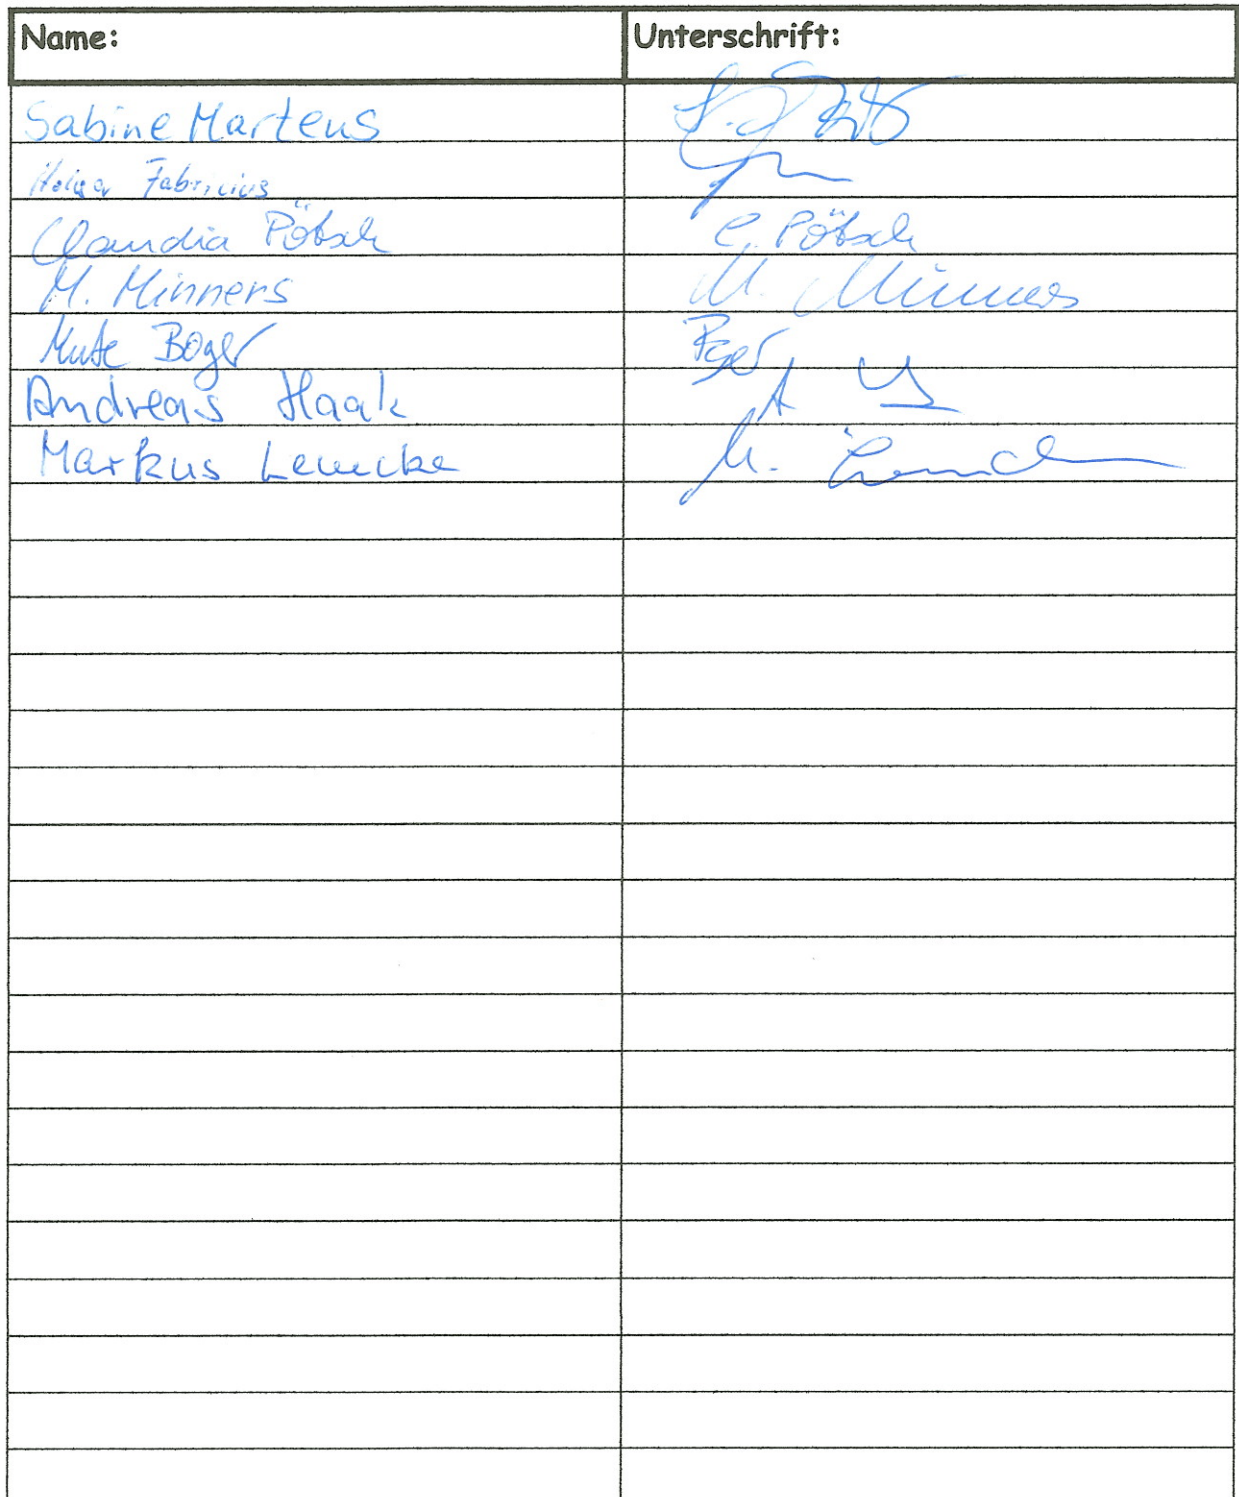 Name: Unterschrift:
Sabine Martens
Holger Fabricius
Claudia Pötsch C. Pötsch
M. Minners M. Minners
Boger
Andreas Haak
Markus Lemcke M.